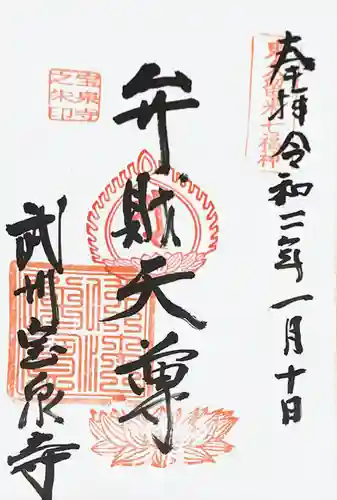 奉拝
令和二年一月十日
東久留米七福神
弁財天尊
武州宝泉寺
宝泉寺之朱印